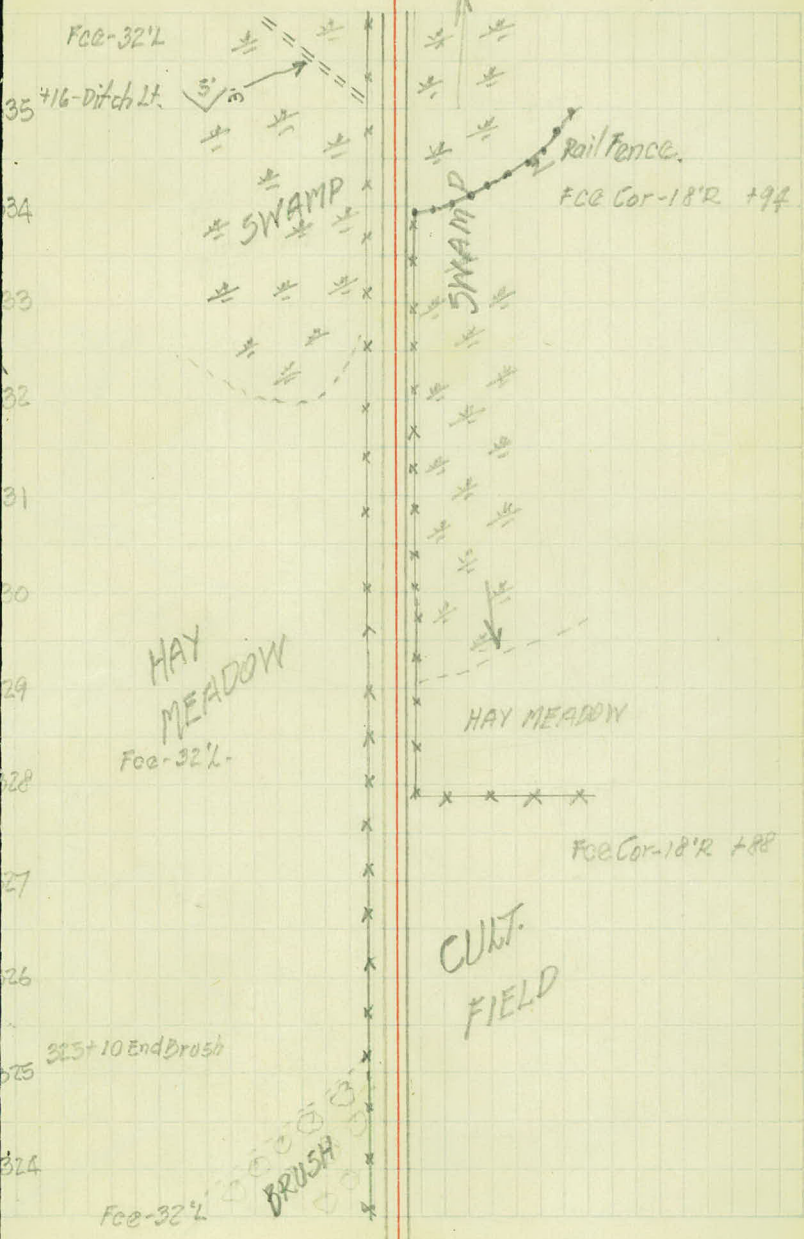 Fce-32'L
35 +16-Ditch Lt. 5' 3'
SWAMP
Rail Fence.
34
Fce Cor-18'R +94
SWAMP
33
32
31
30
HAY
MEADOW
29
HAY MEADOW
Fce-32'L-
328
Fce Cor-18'R +88
27
CULT.
FIELD
26
325+10 End Brush
325
324
BRUSH
Fce-32'L